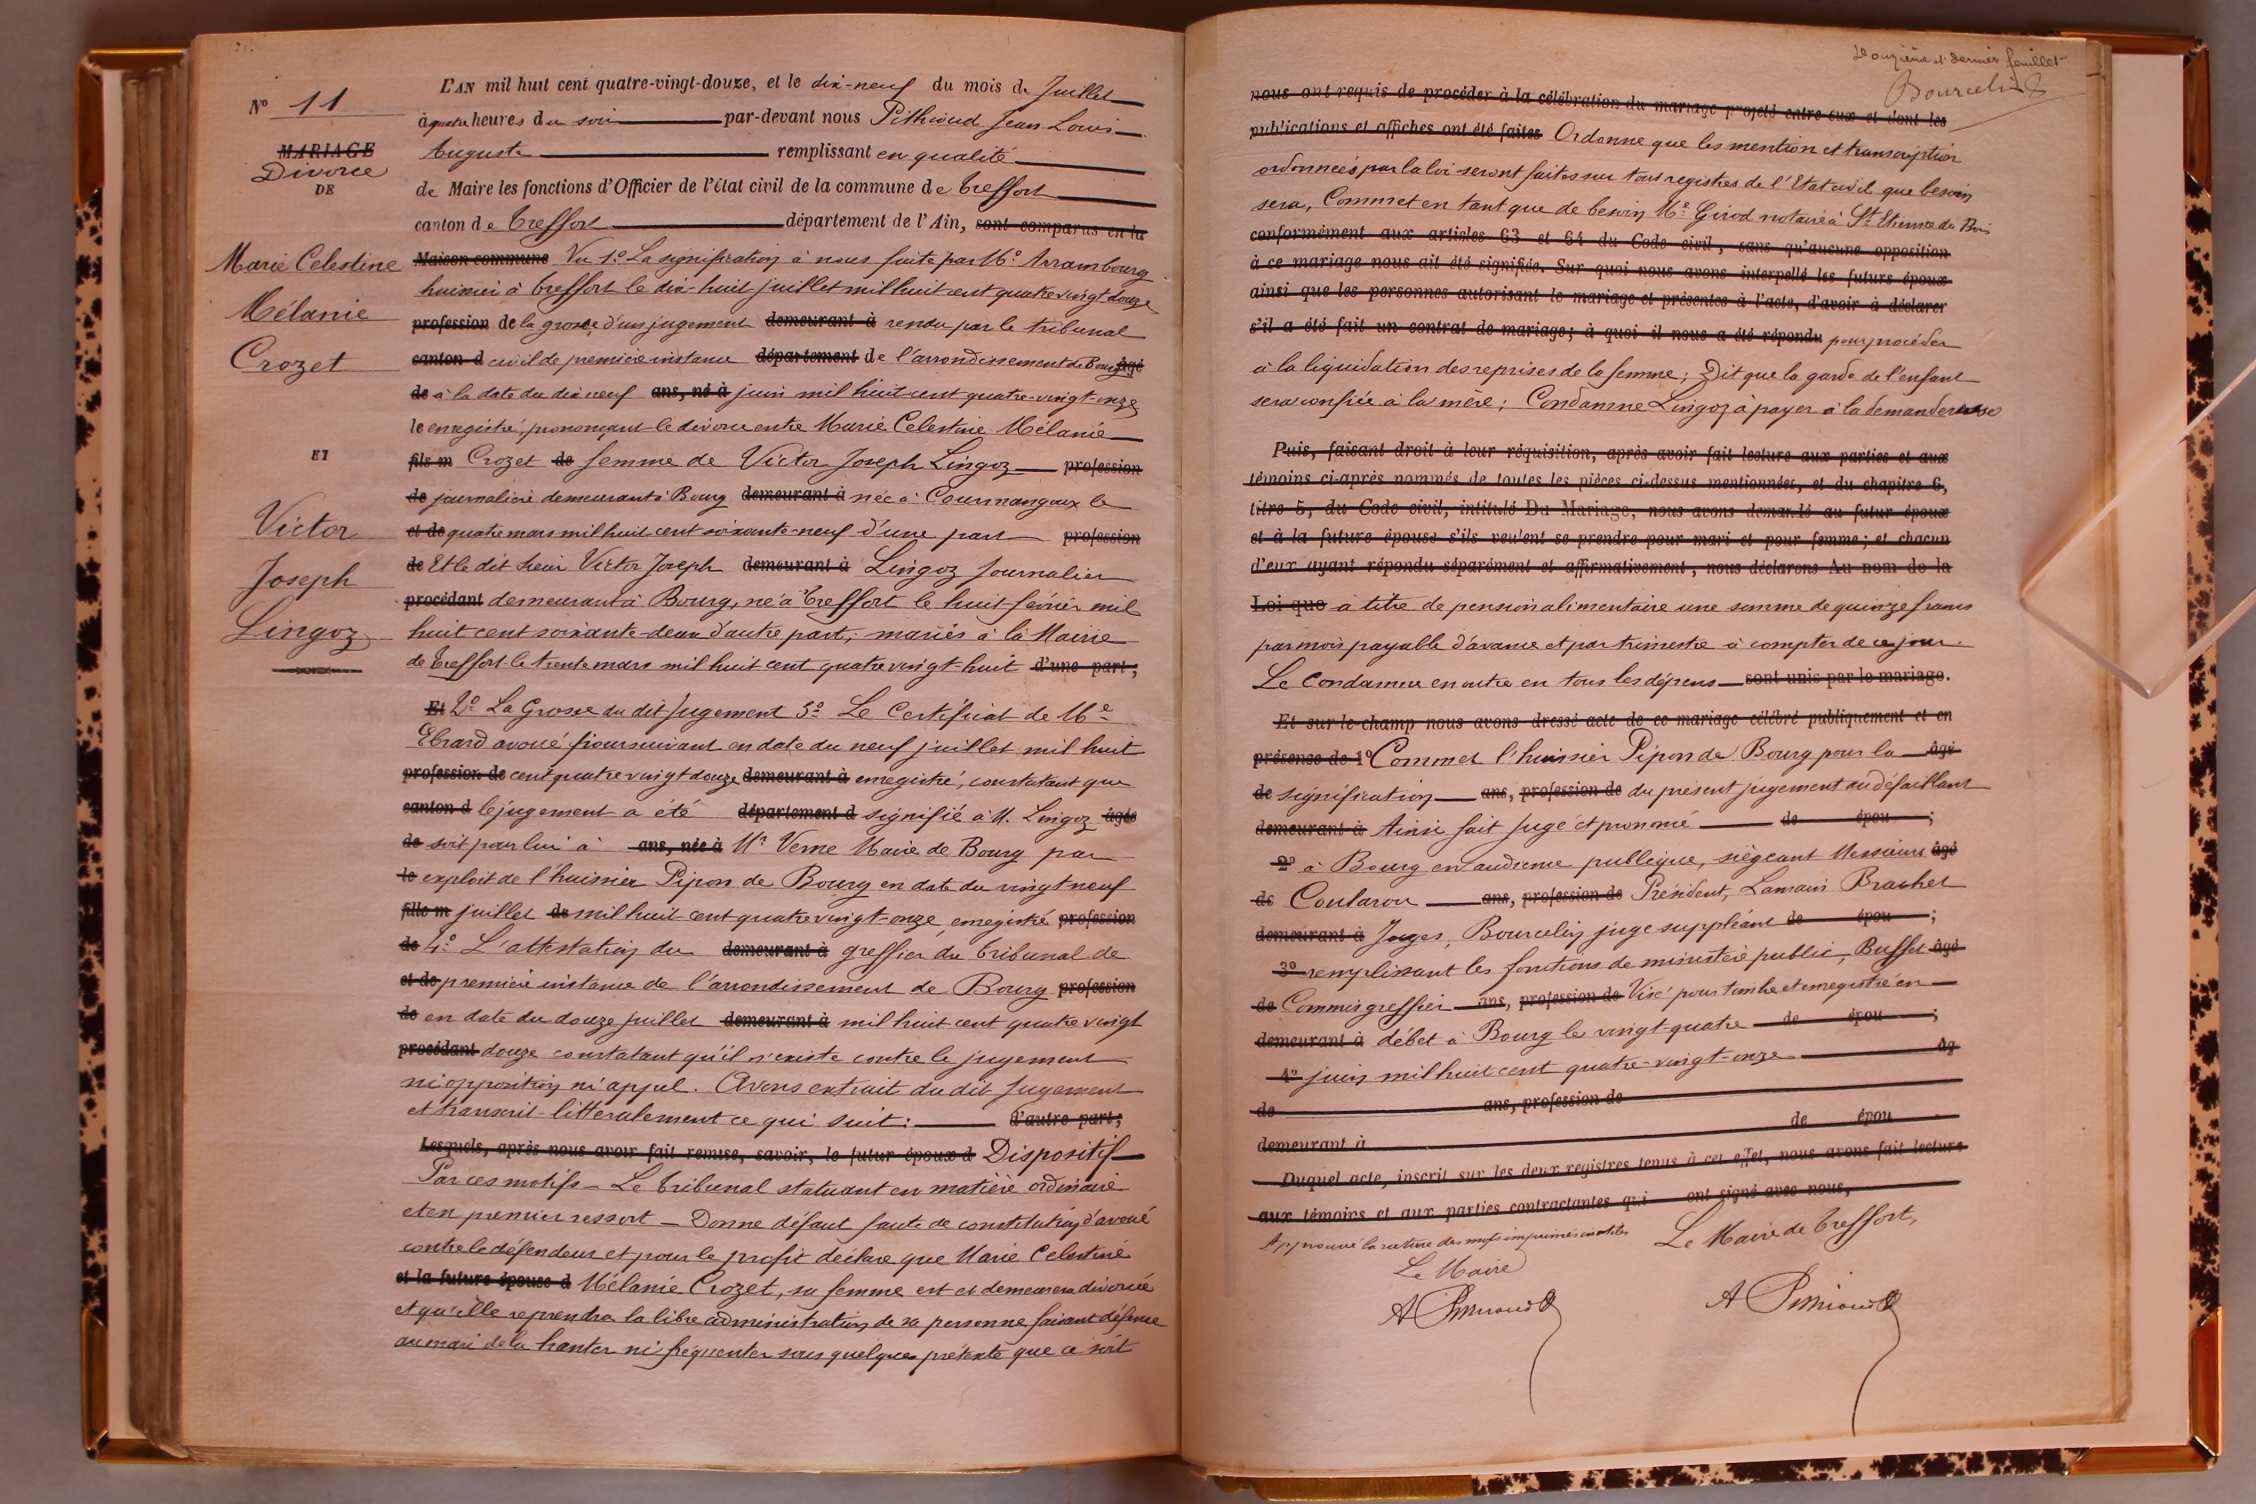 Nº 11
MARIAGE
Divorce
DE
Marie Celestine
Mélanie
Crozet
ET
Victor
Joseph
Lingoz
L'AN mil huit cent quatre-vingt-douze, et le dix-neuf du mois de Juillet
à quatre heures du soir par-devant nous Pithioud Jean Louis
Auguste remplissant en qualité
de Maire les fonctions d'Officier de l'état civil de la commune de Treffort
canton de Treffort département de l'Ain, sont comparus en la
Maison commune Vu 1º La signification à nous faite par Mº Arrambourg
huissier à Treffort le dix-huit juillet mil huit cent quatre vingt douze
profession de la grosse d'un jugement demeurant à rendu par le tribunal
canton d civil de première instance département de l'arrondissement de Bourg âgé
de à la date du dix neuf ans, né à juin mil huit cent quatre-vingt-onze
le enregistré, prononçant le divorce entre Marie Celestine Mélanie
fils m Crozet de femme de Victor Joseph Lingoz profession
de journalière demeurant à Bourg demeurant à née à Courmangoux le
et de quatre mars mil huit cent soixante-neuf d'une part profession
de Et le dit sieur Victor Joseph demeurant à Lingoz journalier
procédant demeurant à Bourg, né à Treffort le huit février mil
huit cent soixante-deux d'autre part; mariés à la Mairie
de Treffort le trente mars mil huit cent quatre vingt-huit d'une part;
Et 2º La Grosse du dit Jugement 3º Le Certificat de Mº
Ebrard avoué poursuivant en date du neuf juillet mil huit
profession de cent quatre vingt douze demeurant à enregistré, constatant que
canton d le jugement a été département d signifié à M. Lingoz âgée
de soit pour lui à ans, née à Mr Verne Maire de Bourg par
le exploit de l'huissier Pipon de Bourg en date du vingt neuf
fille m juillet de mil huit cent quatre vingt-onze, enregistré profession
de 4º L'attestation du demeurant à greffier du tribunal de
et de première instance de l'arrondissement de Bourg profession
de en date du douze juillet demeurant à mil huit cent quatre vingt
procédant douze constatant qu'il n'existe contre le jugement
ni opposition ni appel. Avons extrait du dit Jugement
et transcrit littéralement ce qui suit: d'autre part;
Lesquels, après nous avoir fait remise, savoir, le futur époux d Dispositif
Par ces motifs – Le tribunal statuant en matière ordinaire
et en premier ressort – Donne défaut faute de constitution d'avoué
contre le défendeur et pour le profit déclare que Marie Celestine
et la future épouse d Mélanie Crozet, sa femme est et demeurera divorcée
et qu'elle reprendra la libre administration de sa personne faisant défense
au mari de la hanter ni fréquenter sous quelques prétexte que ce soit
Douzième et dernier feuillet
Bourcelin
nous ont requis de procéder à la célébration du mariage projeté entre eux et dont les
publications et affiches ont été faites Ordonne que les mention et transcription
ordonnées par la loi seront faites sur tous registres de l'Etat civil que besoin
sera, Commet en tant que de besoin Mº Girod notaire à St Etienne du Bois
conformément aux articles 63 et 64 du Code civil, sans qu'aucune opposition
à ce mariage nous ait été signifiée. Sur quoi nous avons interpellé les futurs époux
ainsi que les personnes autorisant le mariage et présentes à l'acte, d'avoir à déclarer
s'il a été fait un contrat de mariage; à quoi il nous a été répondu pour procéder
à la liquidation des reprises de la femme; Dit que la garde de l'enfant
sera confiée à la mère; Condamne Lingoz à payer à la demanderesse
Puis, faisant droit à leur réquisition, après avoir fait lecture aux parties et aux
témoins ci-après nommés de toutes les pièces ci-dessus mentionnées, et du chapitre 6,
titre 5, du Code civil, intitulé Du Mariage, nous avons demandé au futur époux
et à la future épouse s'ils veulent se prendre pour mari et pour femme; et chacun
d'eux ayant répondu séparément et affirmativement, nous déclarons Au nom de la
Loi que à titre de pension alimentaire une somme de quinze francs
par mois payable d'avance et par trimestre à compter de ce jour.
Le Condamne en outre en tous les dépens sont unis par le mariage.
Et sur-le-champ nous avons dressé acte de ce mariage célébré publiquement et en
présence de 1º Commet l'huissier Pipon de Bourg pour la âgé
de signification ans, profession de du présent jugement au défaillant
demeurant à Ainsi fait Jugé et prononcé de épou ;
2º à Bourg en audience publique, siègeant Messieurs âgé
de Coularou ans, profession de Président, Lamain Brachet
demeurant à Juges, Bourcelin juge suppléant de épou ;
3º remplissant les fonctions de ministère public, Buffet âgé
de Commis greffier ans, profession de Visé pour timbre et enregistré en
demeurant à débet à Bourg le vingt-quatre de épou ;
4º juin mil huit cent quatre-vingt-onze âg
de ans, profession de
demeurant à de épou
Duquel acte, inscrit sur les deux registres tenus à cet effet, nous avons fait lecture
aux témoins et aux parties contractantes qui ont signé avec nous,
Approuvé la rature des mots imprimés inutiles
Le Maire
A Pithioud
Le Maire de Treffort,
A Pithioud